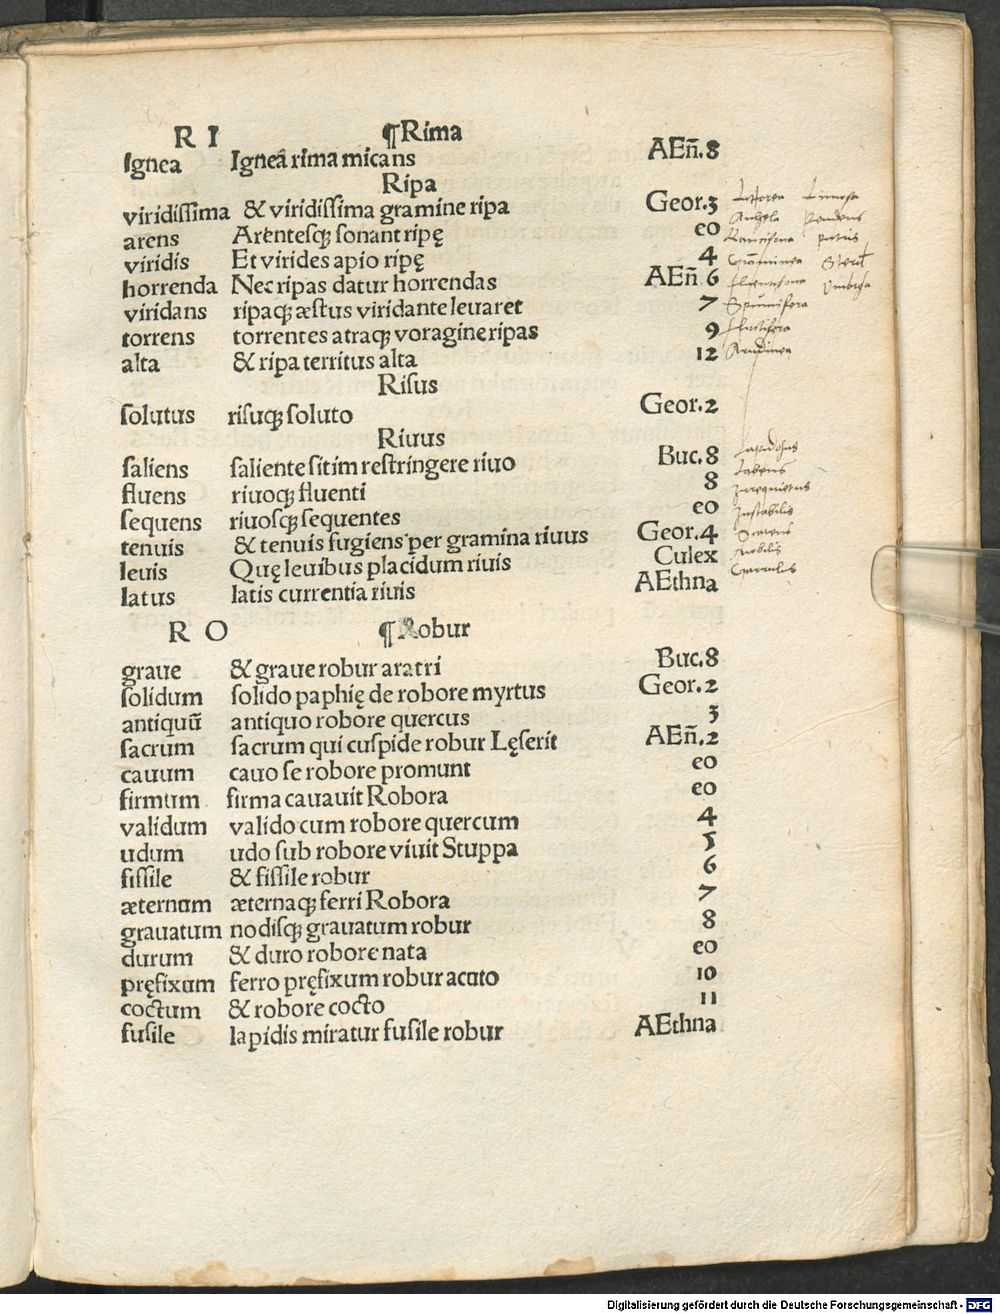 R I ¶Rima
Ignea Igneã rima micans AEñ.8
Ripa
viridissima & viridissima gramine ripa Geor.3
arens Arẽntesqꝫ sonant ripę eo
viridis Et virides apio ripę 4
horrenda Nec ripas datur horrendas AEñ 6
viridans ripaqꝫ æstus viridante leuaret 7
torrens torrentes atraqꝫ voragine ripas 9
alta & ripa territus alta 12
Risus
solutus risuqꝫ soluto Geor.2
Riuus
saliens saliente sitim restringere riuo Buc.8
fluens riuoqꝫ fluenti 8
sequens riuosqꝫ sequentes eo
tenuis & tenuis fugiens per gramina riuus Geor.4
leuis Quę leuibus placidum riuis Culex
latus latis currentia riuis AEthna
R O ¶Robur
graue & graue robur aratri Buc.8
solidum solido paphię de robore myrtus Geor.2
antiquũ antiquo robore quercus 3
sacrum sacrum qui cuspide robur Lęserit AEñ.2
cauum cauo se robore promunt eo
firmum firma cauauit Robora eo
validum valido cum robore quercum 4
udum udo sub robore viuit Stuppa 5
fissile & fissile robur 6
æternum æternaqꝫ ferri Robora 7
grauatum nodisqꝫ grauatum robur 8
durum & duro robore nata eo
pręfixum ferro pręfixum robur acuto 10
coctum & robore cocto 11
fusile lapidis miratur fusile robur AEthna
Limosa
Spumifera
Labens
Instabilis
Nobilis
Garrulus
Digitalisierung gefördert durch die Deutsche Forschungsgemeinschaft - DFG